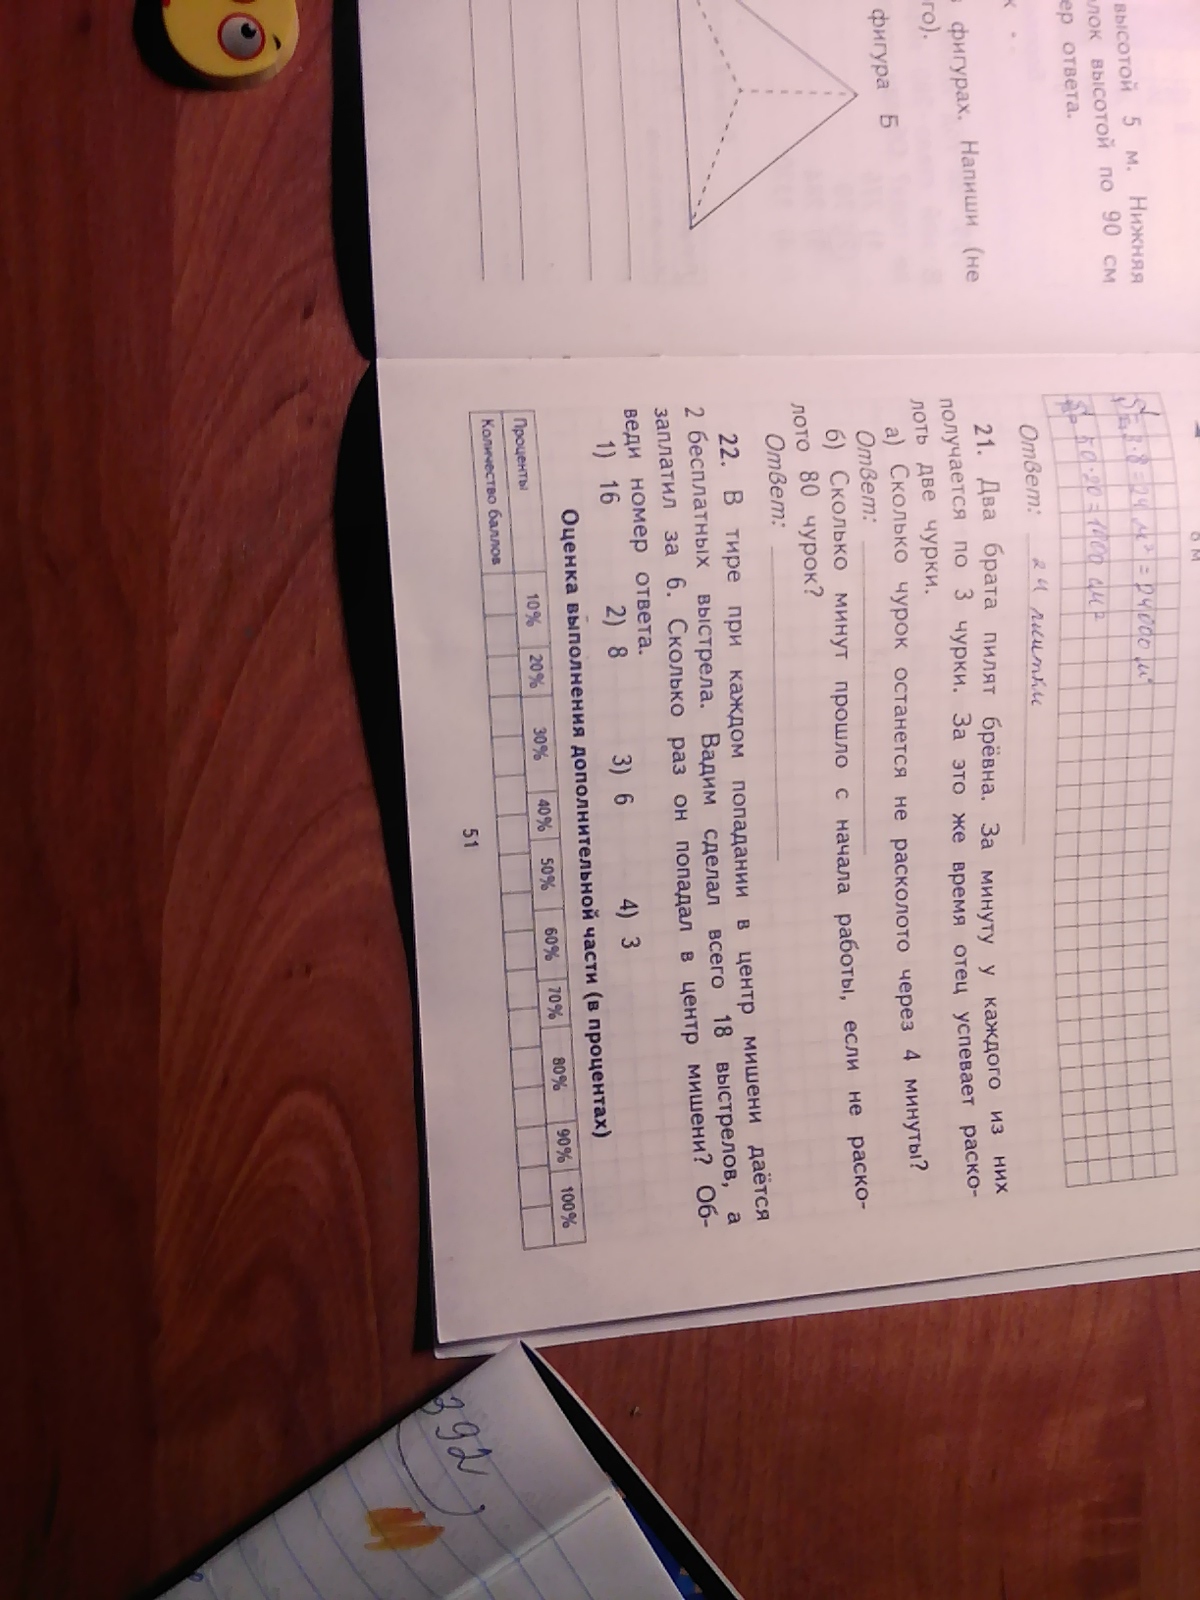 высотой 5 м. Нижняя
лок высотой по 90 см
ер ответа.
фигурах. Напиши (не
го).
фигура Б
8 м
= 3·8 = 24 м² = 24000
50·20 = 1000 см²
Ответ: 24 плитки
21. Два брата пилят брёвна. За минуту у каждого из них
получается по 3 чурки. За это же время отец успевает раско-
лоть две чурки.
а) Сколько чурок останется не расколото через 4 минуты?
Ответ:
б) Сколько минут прошло с начала работы, если не раско-
лото 80 чурок?
Ответ:
22. В тире при каждом попадании в центр мишени даётся
2 бесплатных выстрела. Вадим сделал всего 18 выстрелов, а
заплатил за 6. Сколько раз он попадал в центр мишени? Об-
веди номер ответа.
1) 16 2) 8 3) 6 4) 3
Оценка выполнения дополнительной части (в процентах)
Проценты 10% 20% 30% 40% 50% 60% 70% 80% 90% 100%
Количество баллов
51
392